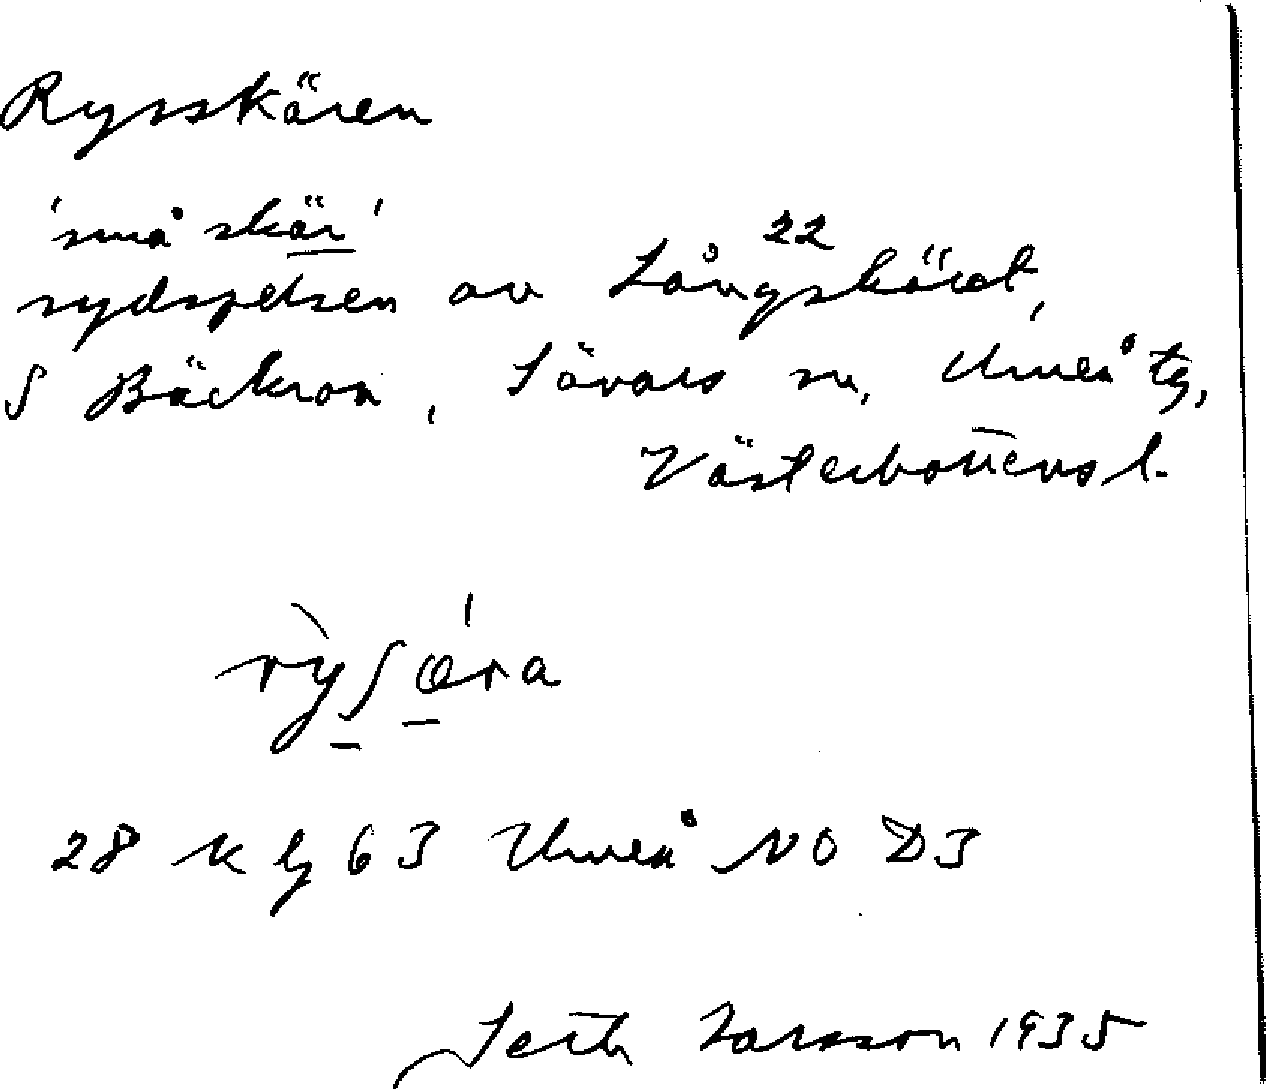 Rysskären
'små skär'
sydspetsen av Långskäret, 22
S Bäckron, Sävars sn, Umeå tg,
Västerbottens l.
rỳʃæ̀ra
28 K lj 63 Umeå NO D3
Seth Larsson 1935